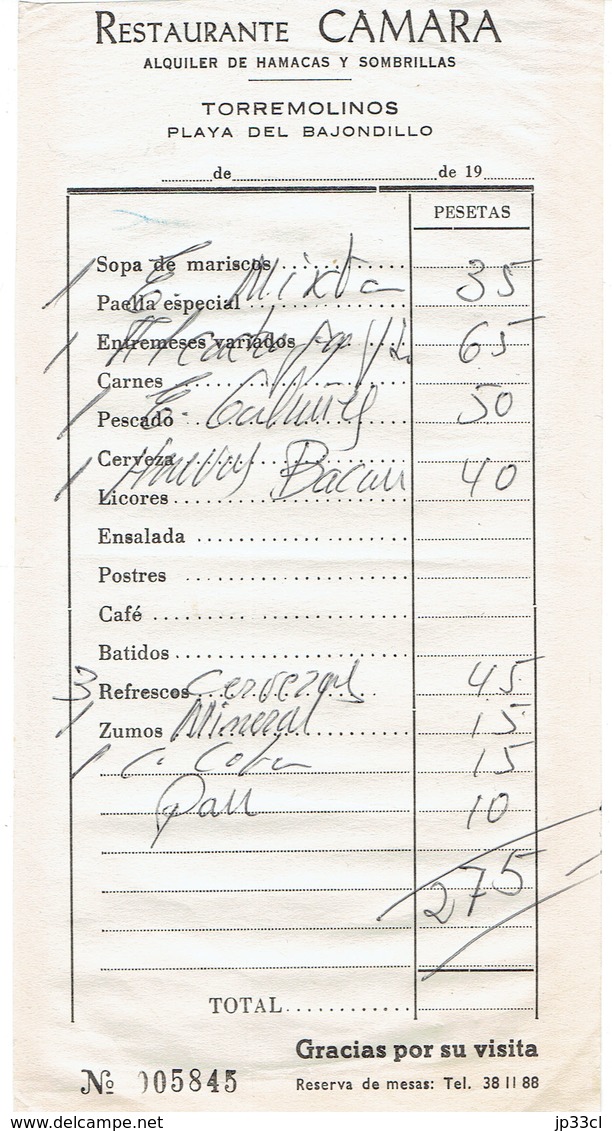 RESTAURANTE CAMARA
ALQUILER DE HAMACAS Y SOMBRILLAS
TORREMOLINOS
PLAYA DEL BAJONDILLO
de de 19
PESETAS
Sopa de mariscos
1 E. Mixta 35
Paella especial
Entremeses variados
1 65
Carnes
1 E. 50
Pescado
Cerveza
1 Huevos Bacon 40
Licores
Ensalada
Postres
Café
Batidos
3 Refrescos Cervezas 45
1 Zumos Mineral 15
1 C. Cola 15
Pan 10
275
TOTAL
Gracias por su visita
Nº 005845 Reserva de mesas: Tel. 38 11 88
www.delcampe.net jp33cl